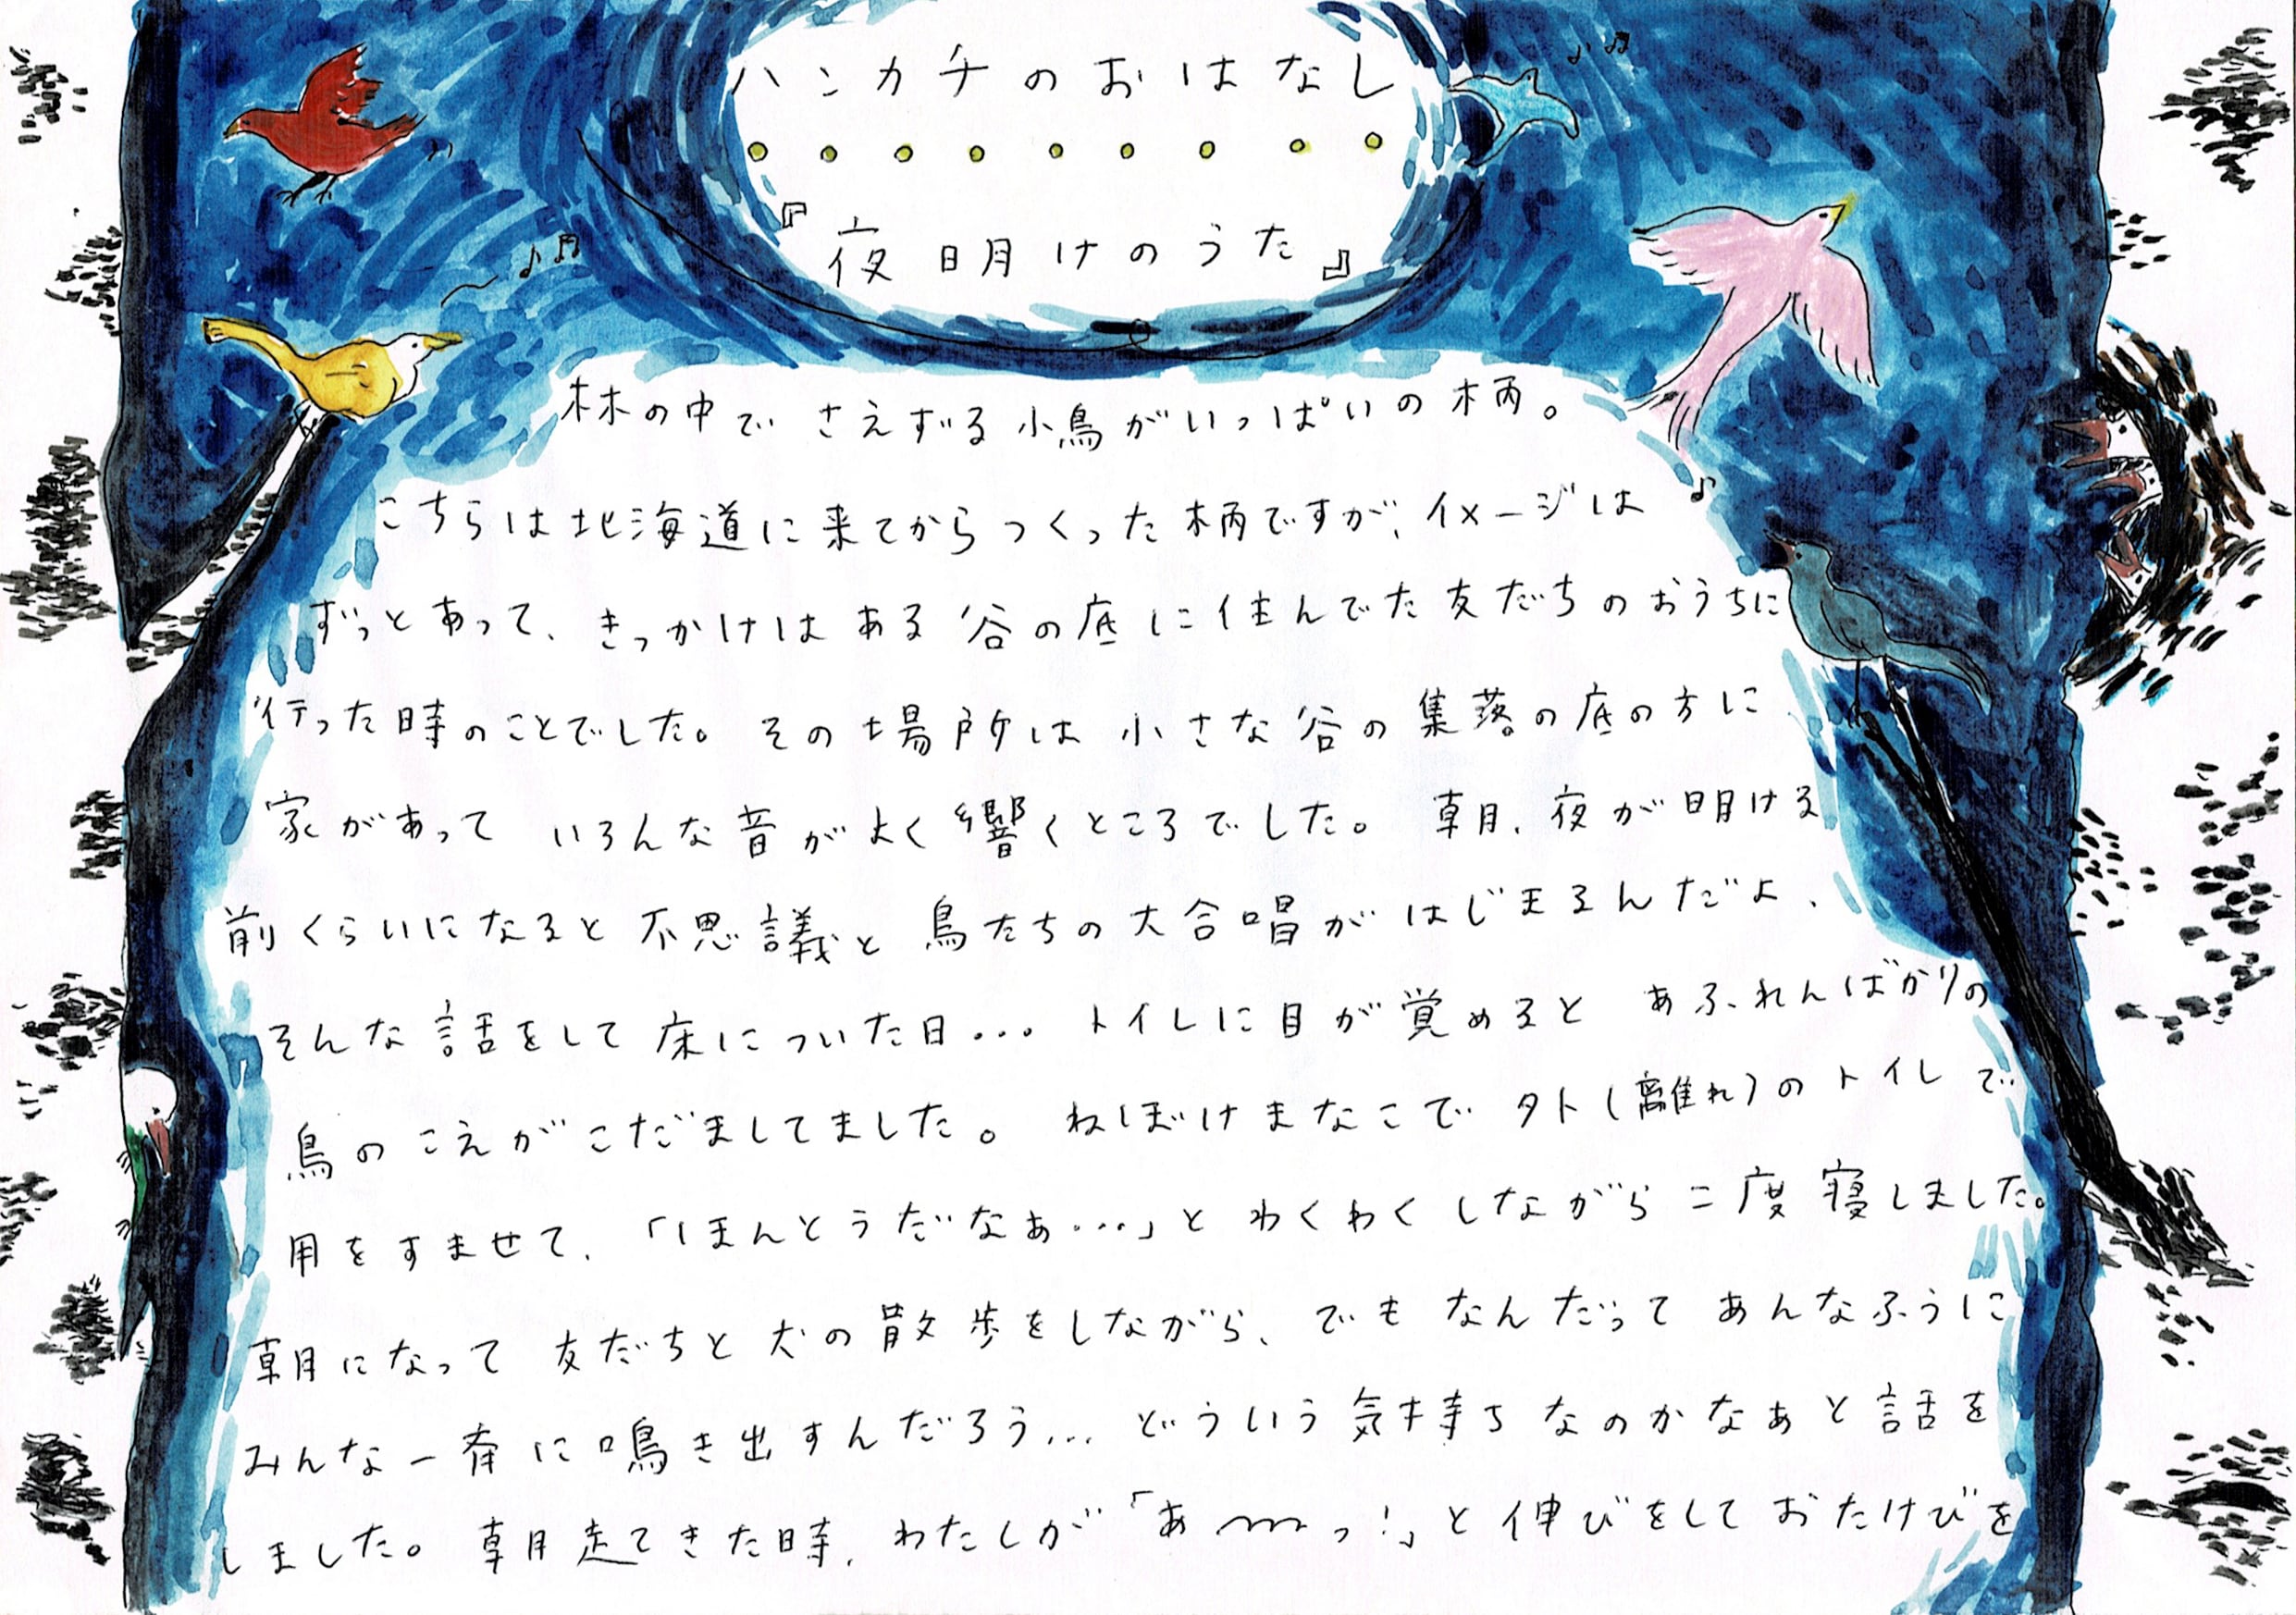 ハンカチのおはなし
『夜明けのうた』
林の中で さえずる 小鳥がいっぱいの柄。
こちらは北海道に来てからつくった柄ですが、イメージは
ずっとあって、きっかけは ある 谷の底に住んでた友だちのおうちに
行った時のことでした。その場所は 小さな谷の集落の底の方に
家があって いろんな音がよく響くところでした。 朝、夜が明ける
前くらいになると不思議と 鳥たちの大合唱が はじまるんだよ、
そんな話をして床についた日... トイレに目が覚めると あふれんばかりの
鳥のこえがこだましてました。 ねぼけまなこで 外(離れ)のトイレで
用をすませて、「ほんとうだなぁ...」と わくわくしながら 二度寝しました。
朝になって 友だちと犬の散歩をしながら、でも なんだって あんなふうに
みんな一斉に鳴き出すんだろう... どういう気持ちなのかなぁと話を
しました。 朝起てきた時、わたしが「あ〜〜〜っ!」と伸びをしておたけびを